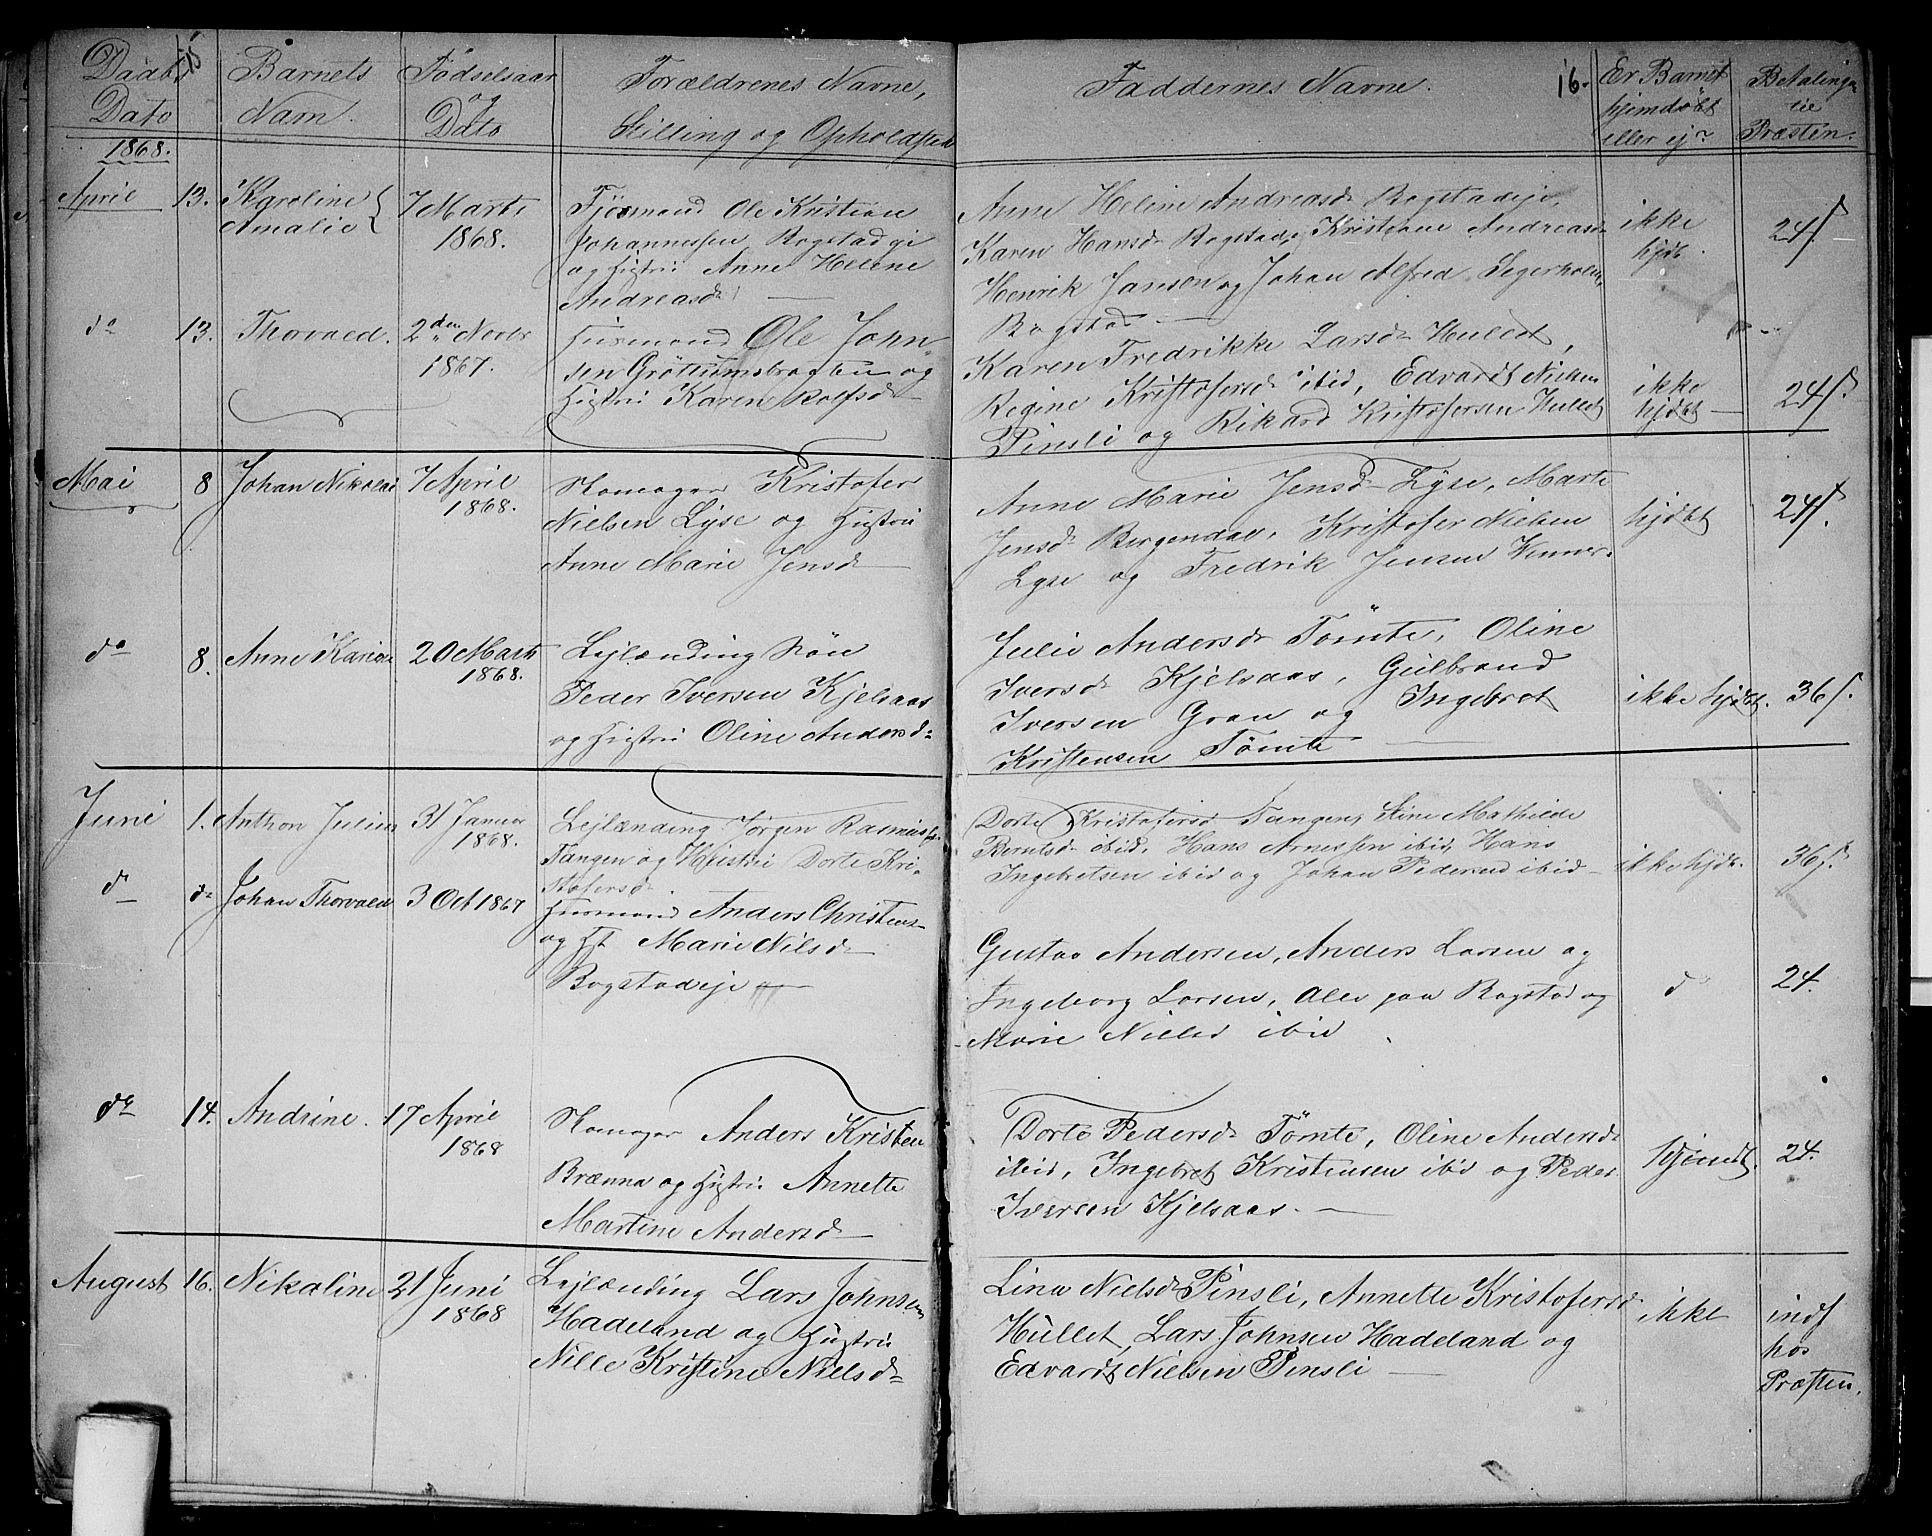 15
Daabs
Dato
Barnets
Navn.
Fødselsaar
og
Dato
Forældrenes Navne,
Stilling og Opholdssted
Faddernes Navne.
16.
Er Barnet
hjemdöbt
eller ej?
Betaling
til
Præsten.
1868.
April 13. Karoline
Amalie
7 Marts
1868.
Ole Kristian
Johannessen Bogstadeje
og Hustru Anne Helene
Andreasd.
Anne Heline Andreasd. Bogstadeje,
Karen Hansd. Bogstad, Kristiane Andreasd.
Henrik Jansen og Johan Alfred Segerholm,
Bogstad
ikke
hjdt.
24 s.
do 13. Thorvald.
2den Novbr
1867.
Husmand Ole John-
sen Gröttumsbraaten og
Hustru Karen Rolfsd.
Karen Fredrikke Larsd. Hullet,
Regine Kristofersd. ibid, Edvardt Nielsen
Pinsli og Rikard Kristofersen Hullet
ikke
hjdbt
24 s.
Mai 8 Johan Nikolai
7 April
1868.
Kristofer
Nielsen Lyse og Hustru
Anne Marie Jensd.
Anne Marie Jensd. Lyse, Marte
Jensd. Bergendal, Kristofer Nielsen
Lyse og Fredrik Jensen
hjdbt
24 s.
do 8. Anne Karine
20 Marts
1868.
Lejlænding Søn
Peder Iversen Kjelsaas
og Hustru Oline Andersd.
Julie Andersd. Tömte, Oline
Iversd. Kjelsaas, Gulbrand
Iversen Gran og Ingebret
Kristensen Tömte
ikke hjdbt.
36 s.
Juni 1. Anthon Julius
31 Januar
1868.
Lejlænding Jörgen Rasmussen
Tangen og Hustru Dorte Kri-
stofersd.
Dorte Kristofersd. Tangen, Stine Mathilde
Berntsd. ibid, Hans Arnessen ibid, Hans
Ingebretsen ibid og Johan Pedersen ibid
ikke hjdt.
36 s.
do do Johan Thorvald
3 Oct 1867
Husmand Anders Christens.
og H. Marie Nilsd.
Bogstadeje
Gustav Andersen, Anders Larsen og
Ingeborg Larsen, Alle paa Bogstad og
Marie Nielsd ibid
do
24.
do 14. Andrine.
17 April
1868
Anders Kristen
Brænna og Hustru Annette
Martine Andersd.
Dorte Pedersd. Tömte, Oline Andersd.
ibid, Ingebret Kristensen ibid og Peder
Iversen Kjelsaas.
hjemdt.
24.
August 16. Nikaline
21 Juni
1868
Lejlænding Lars Johnsen
Hadeland og Hustru
Nille Kristine Nielsd.
Lina Nielsd. Pinsli, Annette Kristofersd.
Hullet, Lars Johnsen Hadeland og
Edvardt Nielsen Pinsli
ikke
indf
hos
Præsten.